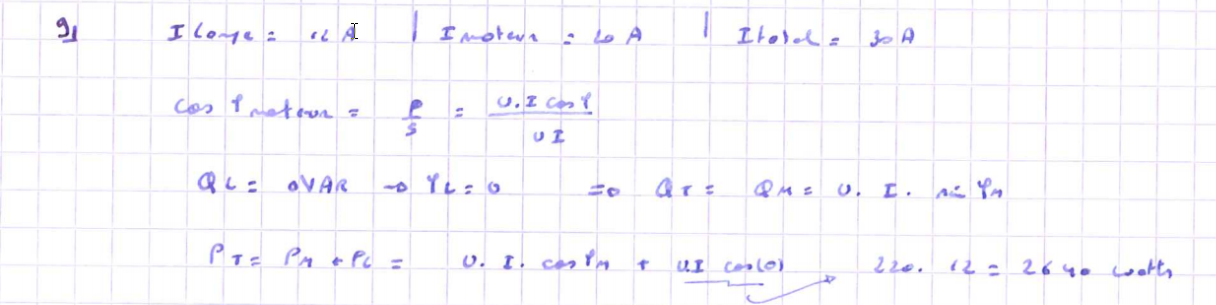 9) I lampe = 12 A | I moteur = 20 A | I total = 30 A
cos φ moteur = P/S = U.I cos φ / UI
QL = 0VAR → φL = 0 => QT = QM = U. I. sin φM
PT = PM + PL = U. I. cos φM + UI cos(0) → 220. 12 = 2640 watts